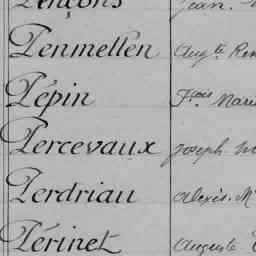 Penmellen Aug.te Ren
Pépin F.çois Marie
Percevaux Joseph
Perdriau Alexis. M
Périnet Auguste